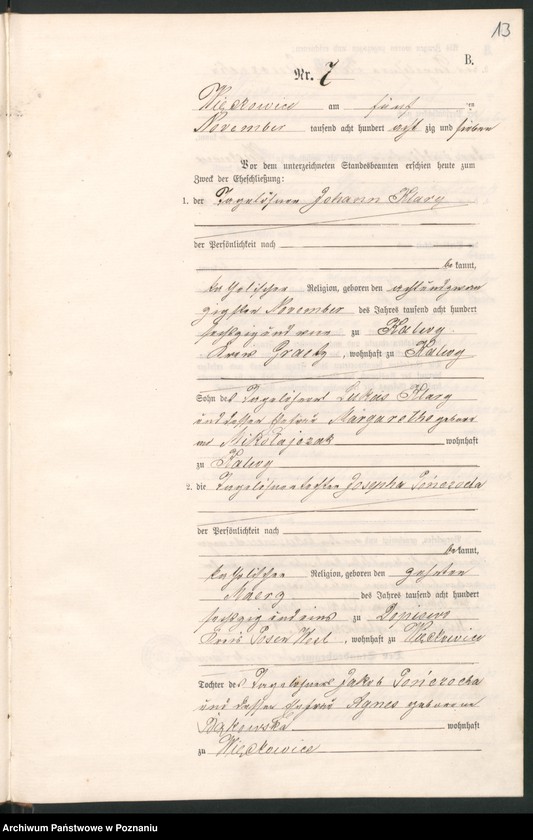 13
B.
Nr. 7
Więckowice am fünf ten
November tausend acht hundert acht zig und sieben
Vor dem unterzeichneten Standesbeamten erschien heute zum
Zweck der Eheschließung:
1. der Tagelöhner Johann Klary
der Persönlichkeit nach
be kannt,
katholischer Religion, geboren den achtundzwan
zigsten November des Jahres tausend acht hundert
sechzig und zu Kalwy
Kreis Graetz, wohnhaft zu Kalwy
Sohn des Tagelöhners Lukas Klary
und dessen Ehefrau Margarethe gebore
ne Mikołajczak wohnhaft
zu Kalwy
2. die Tagelöhnertochter Josepha Pończocha
der Persönlichkeit nach
be kannt,
katholischer Religion, geboren den zehnten
Maerz des Jahres tausend acht hundert
sechzig und eins zu Dopiewo
Kreis Posen West, wohnhaft zu Więckowice
Tochter des Tagelöhners Jakob Pończocha
und dessen Ehefrau Agnes geborene
Bąkowska wohnhaft
zu Więckowice
Archiwum Państwowe w Poznaniu